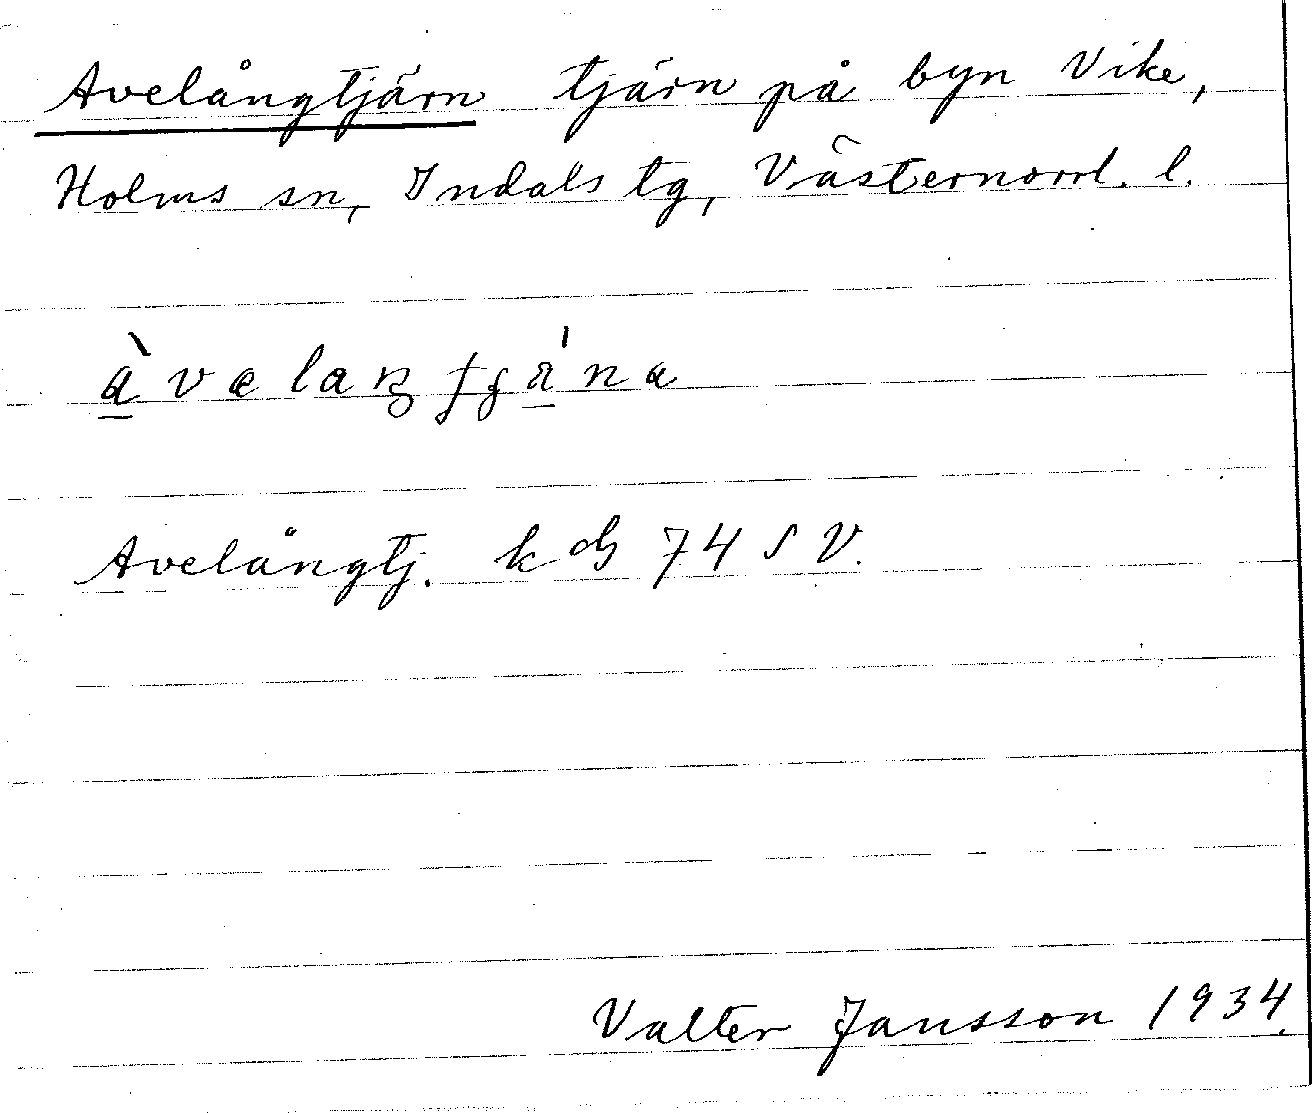 Avelångtjärn tjärn på byn Vike,
Holms sn, Indals tg, Västernorrl. l.
Avelångtj. kbl 74 SV.
Valter Jansson 1934.